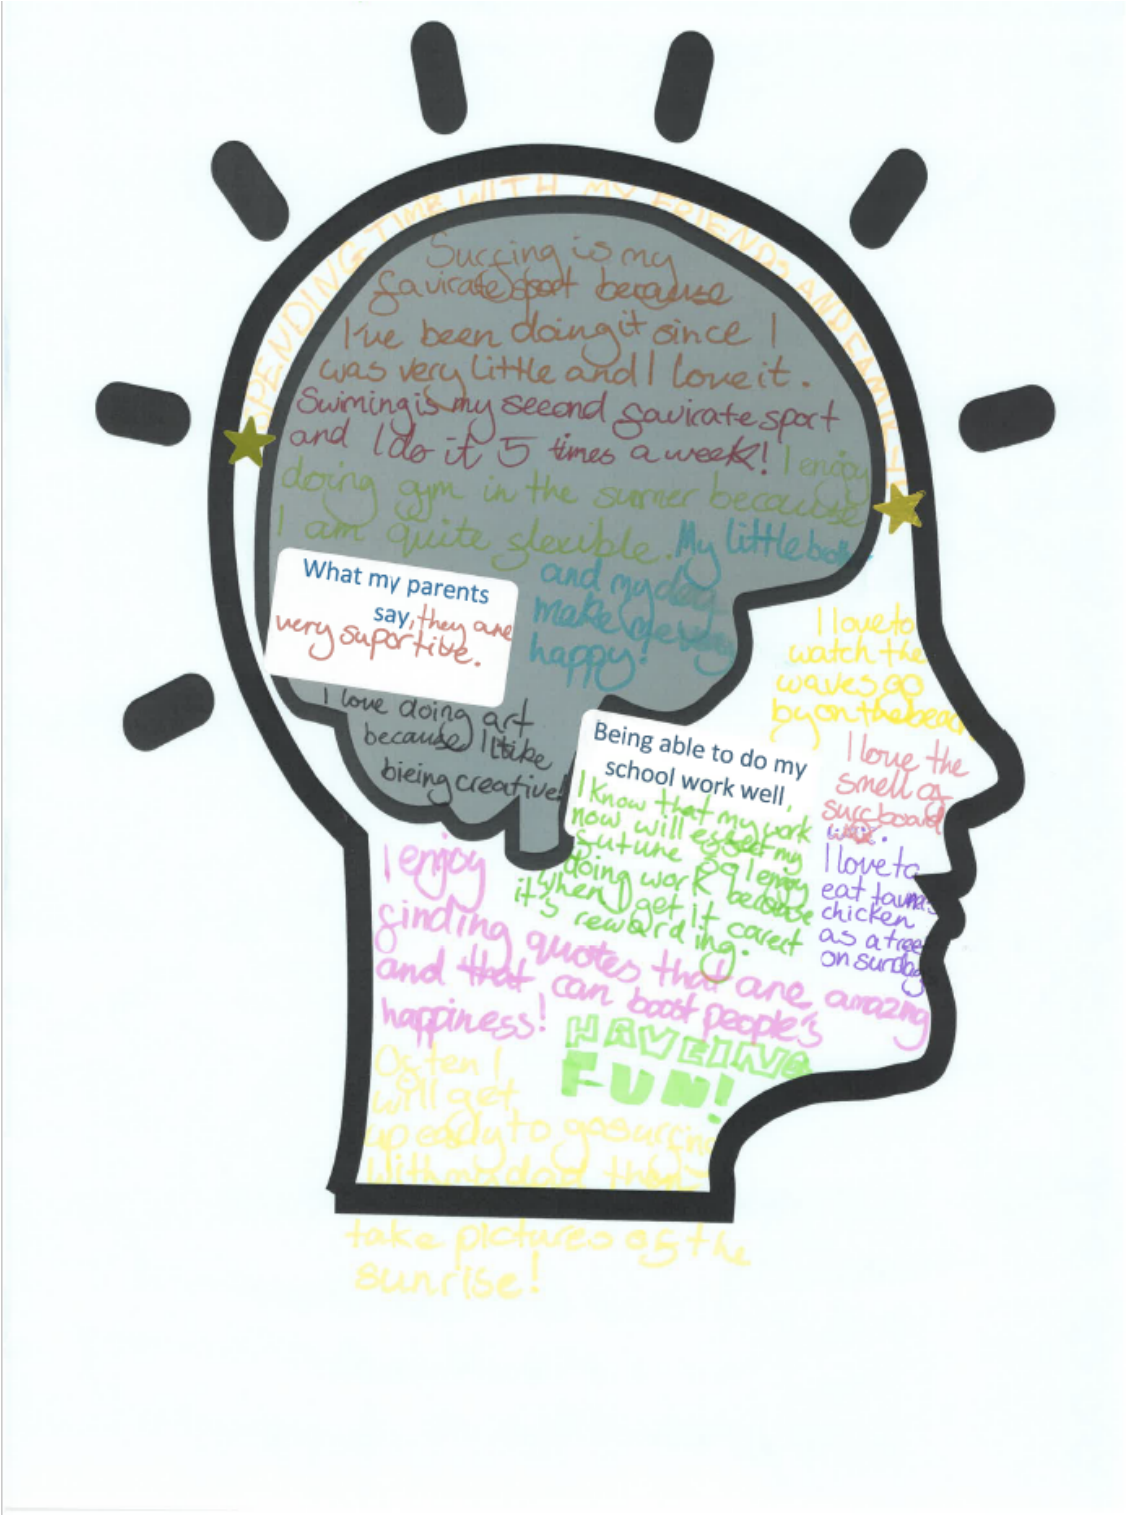 SPENDING TIME WITH MY FRIENDS AND FAMILY
Surfing is my
favirate spoat because
I've been doing it since I
was very little and I love it.
Swiming is my second favirate sport
and I do it 5 times a week! I enjoy
doing gym in the summer because
I am quite flexible. My little
and my dog
make me very
happy!
What my parents
say, they are
very suportive.
I love doing art
because I like
bieing creative!
I love to
watch the
waves go
by on the beach
I love the
smell of
surfboard
wax.
I love to
eat
chicken
as a treat
on sunday
Being able to do my
school work well,
I know that my work
now will effect my
future so I enjoy
doing work because
when I get it carect
it's rewarding.
I enjoy
finding quotes that are amazing
and that can boost people's
happiness!
HAVEING
FUN!
Often I
will get
up early to go surfing
with my dad then
take pictures of the
sunrise!